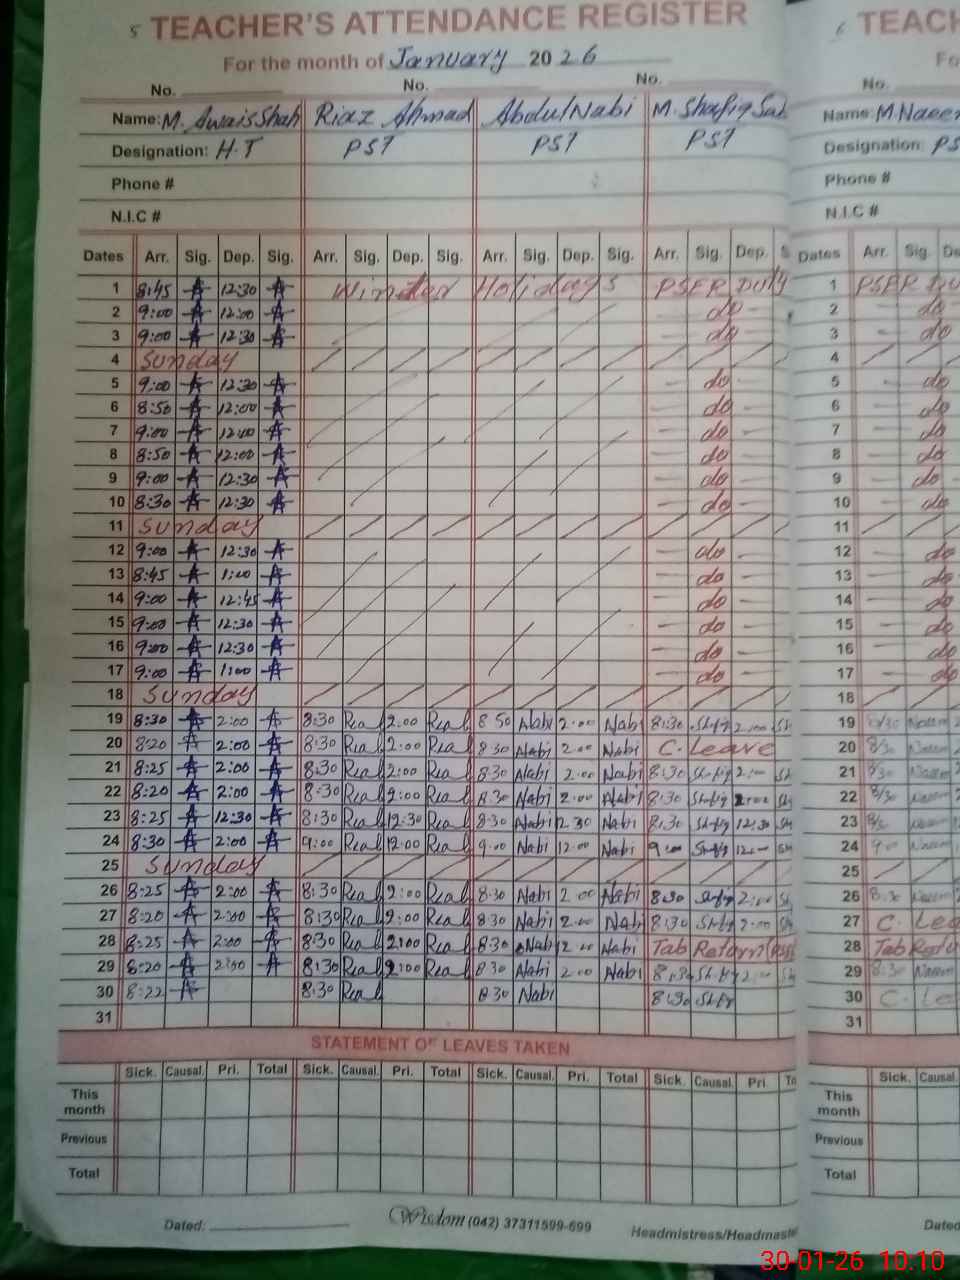 5 TEACHER'S ATTENDANCE REGISTER
For the month of January 2026
No. No. No.
Name: M. Awais Shah Riaz Ahmad Abdul Nabi M. Shafiq
Designation: H.T PST PST PST
Phone #
N.I.C #
Dates Arr. Sig. Dep. Sig. Arr. Sig. Dep. Sig. Arr. Sig. Dep. Sig. Arr. Sig. Dep. S
1 8:45 12:30 Winter Holidays PSER Duty
2 9:00 12:00 do
3 9:00 12:30 do
4 Sunday
5 9:00 12:30 do
6 8:50 12:00 do
7 9:00 12:00 do
8 8:50 12:00 do
9 9:00 12:30 do
10 8:30 12:30 do
11 Sunday
12 9:00 12:30 do
13 8:45 1:00 do
14 9:00 12:45 do
15 9:00 12:30 do
16 9:00 12:30 do
17 9:00 1:00 do
18 Sunday
19 8:30 2:00 8:30 2:00 8 50 Nabi 2:00 Nabi 8:30 2:00
20 8:20 2:00 8:30 2:00 8 30 Nabi 2:00 Nabi C. Leave
21 8:25 2:00 8:30 2:00 8 30 Nabi 2:00 Nabi 8:30
22 8:20 2:00 8:30 2:00 8 30 Nabi 2:00 Nabi 8:30 2:00
23 8:25 12:30 8:30 12:30 8:30 Nabi 12 30 Nabi 8:30 12:30
24 8:30 2:00 9:00 12:00 9:00 Nabi 12:00 Nabi 9:00 12:00
25 Sunday
26 8:25 2:00 8:30 2:00 8:30 Nabi 2:00 Nabi 8:30 2:00
27 8:20 2:00 8:30 2:00 8:30 Nabi 2:00 Nabi 8:30 2:00
28 8:25 2:00 8:30 2:00 8:30 Nabi 2:00 Nabi Tab Return
29 8:20 2:00 8:30 2:00 8 30 Nabi 2:00 Nabi 8:30 2:00
30 8:22 8:30 8 30 Nabi 8:30
31
STATEMENT OF LEAVES TAKEN
Sick. Causal. Pri. Total Sick. Causal. Pri. Total Sick. Causal. Pri. Total Sick. Causal. Pri. To
This month
Previous
Total
Dated: Wisdom (042) 37311599-699 Headmistress/Headmaste
6 TEACH
Fo
No.
Name: M Naeem
Designation: PS
Phone #
N.I.C #
Dates Arr. Sig. De
1 PSER Du
2 do
3 do
4
5 do
6 do
7 do
8 do
9 do
10 do
11
12 do
13 do
14 do
15 do
16 do
17 do
18
19 Naeem
20 8/30 Naeem
21 8/30 Naeem
22 8/30 Naeem
23 Naeem
24 9:00 Naeem
25
26 8:30 Naeem
27 C. Lea
28 Tab Retu
29 8:30 Naeem
30 C. Le
31
Sick. Causal
This month
Previous
Total
Dated
30-01-26 10:10